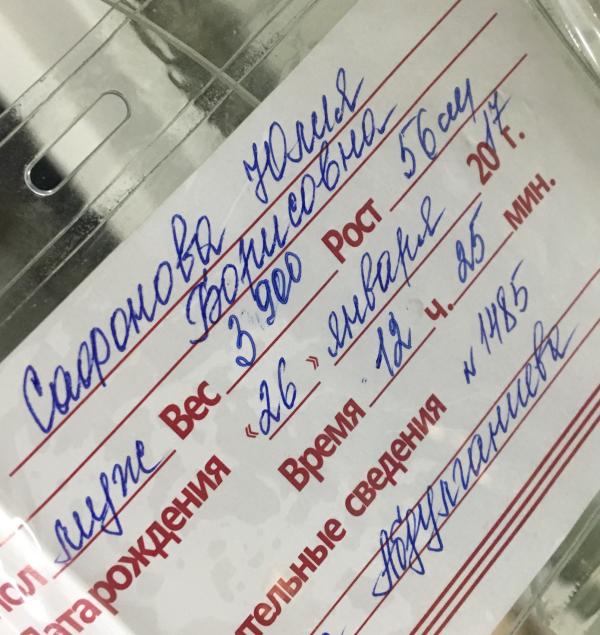 Сафронова Юлия
Борисовна
пол муж Вес 3900 Рост 56 см
Дата рождения «26» января 2017 г.
Время 12 ч. 25 мин.
тельные сведения N 1485
Абдулганиева